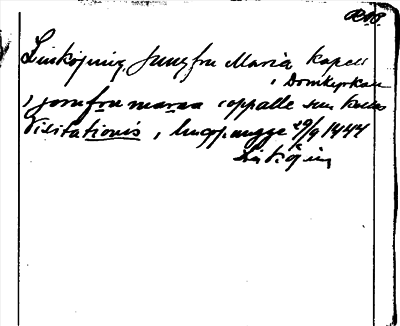 Linköping, Jungfru Maria kapell
i Domkyrkan
i jomfru marie coppalle
Visitationis, 29/9 1444
Linköping